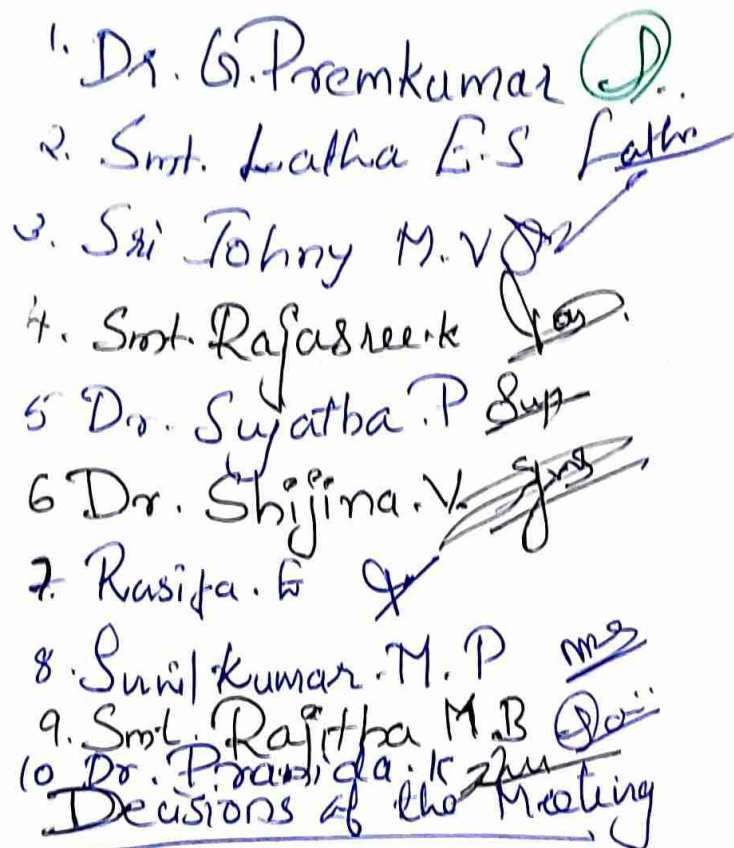 1. Dr. G. Premkumar
2. Smt. Latha E.S Latha
3. Sri Johny M.V
4. Smt. Rajasree.k
5 Dr. Sujatha.P Suja
6 Dr. Shijina.V.
7. Rasija.E
8. Sunil Kumar.M.P
9. Smt. Rajitha M.B
10 Dr. Pramida.K
Decisions of the Meeting